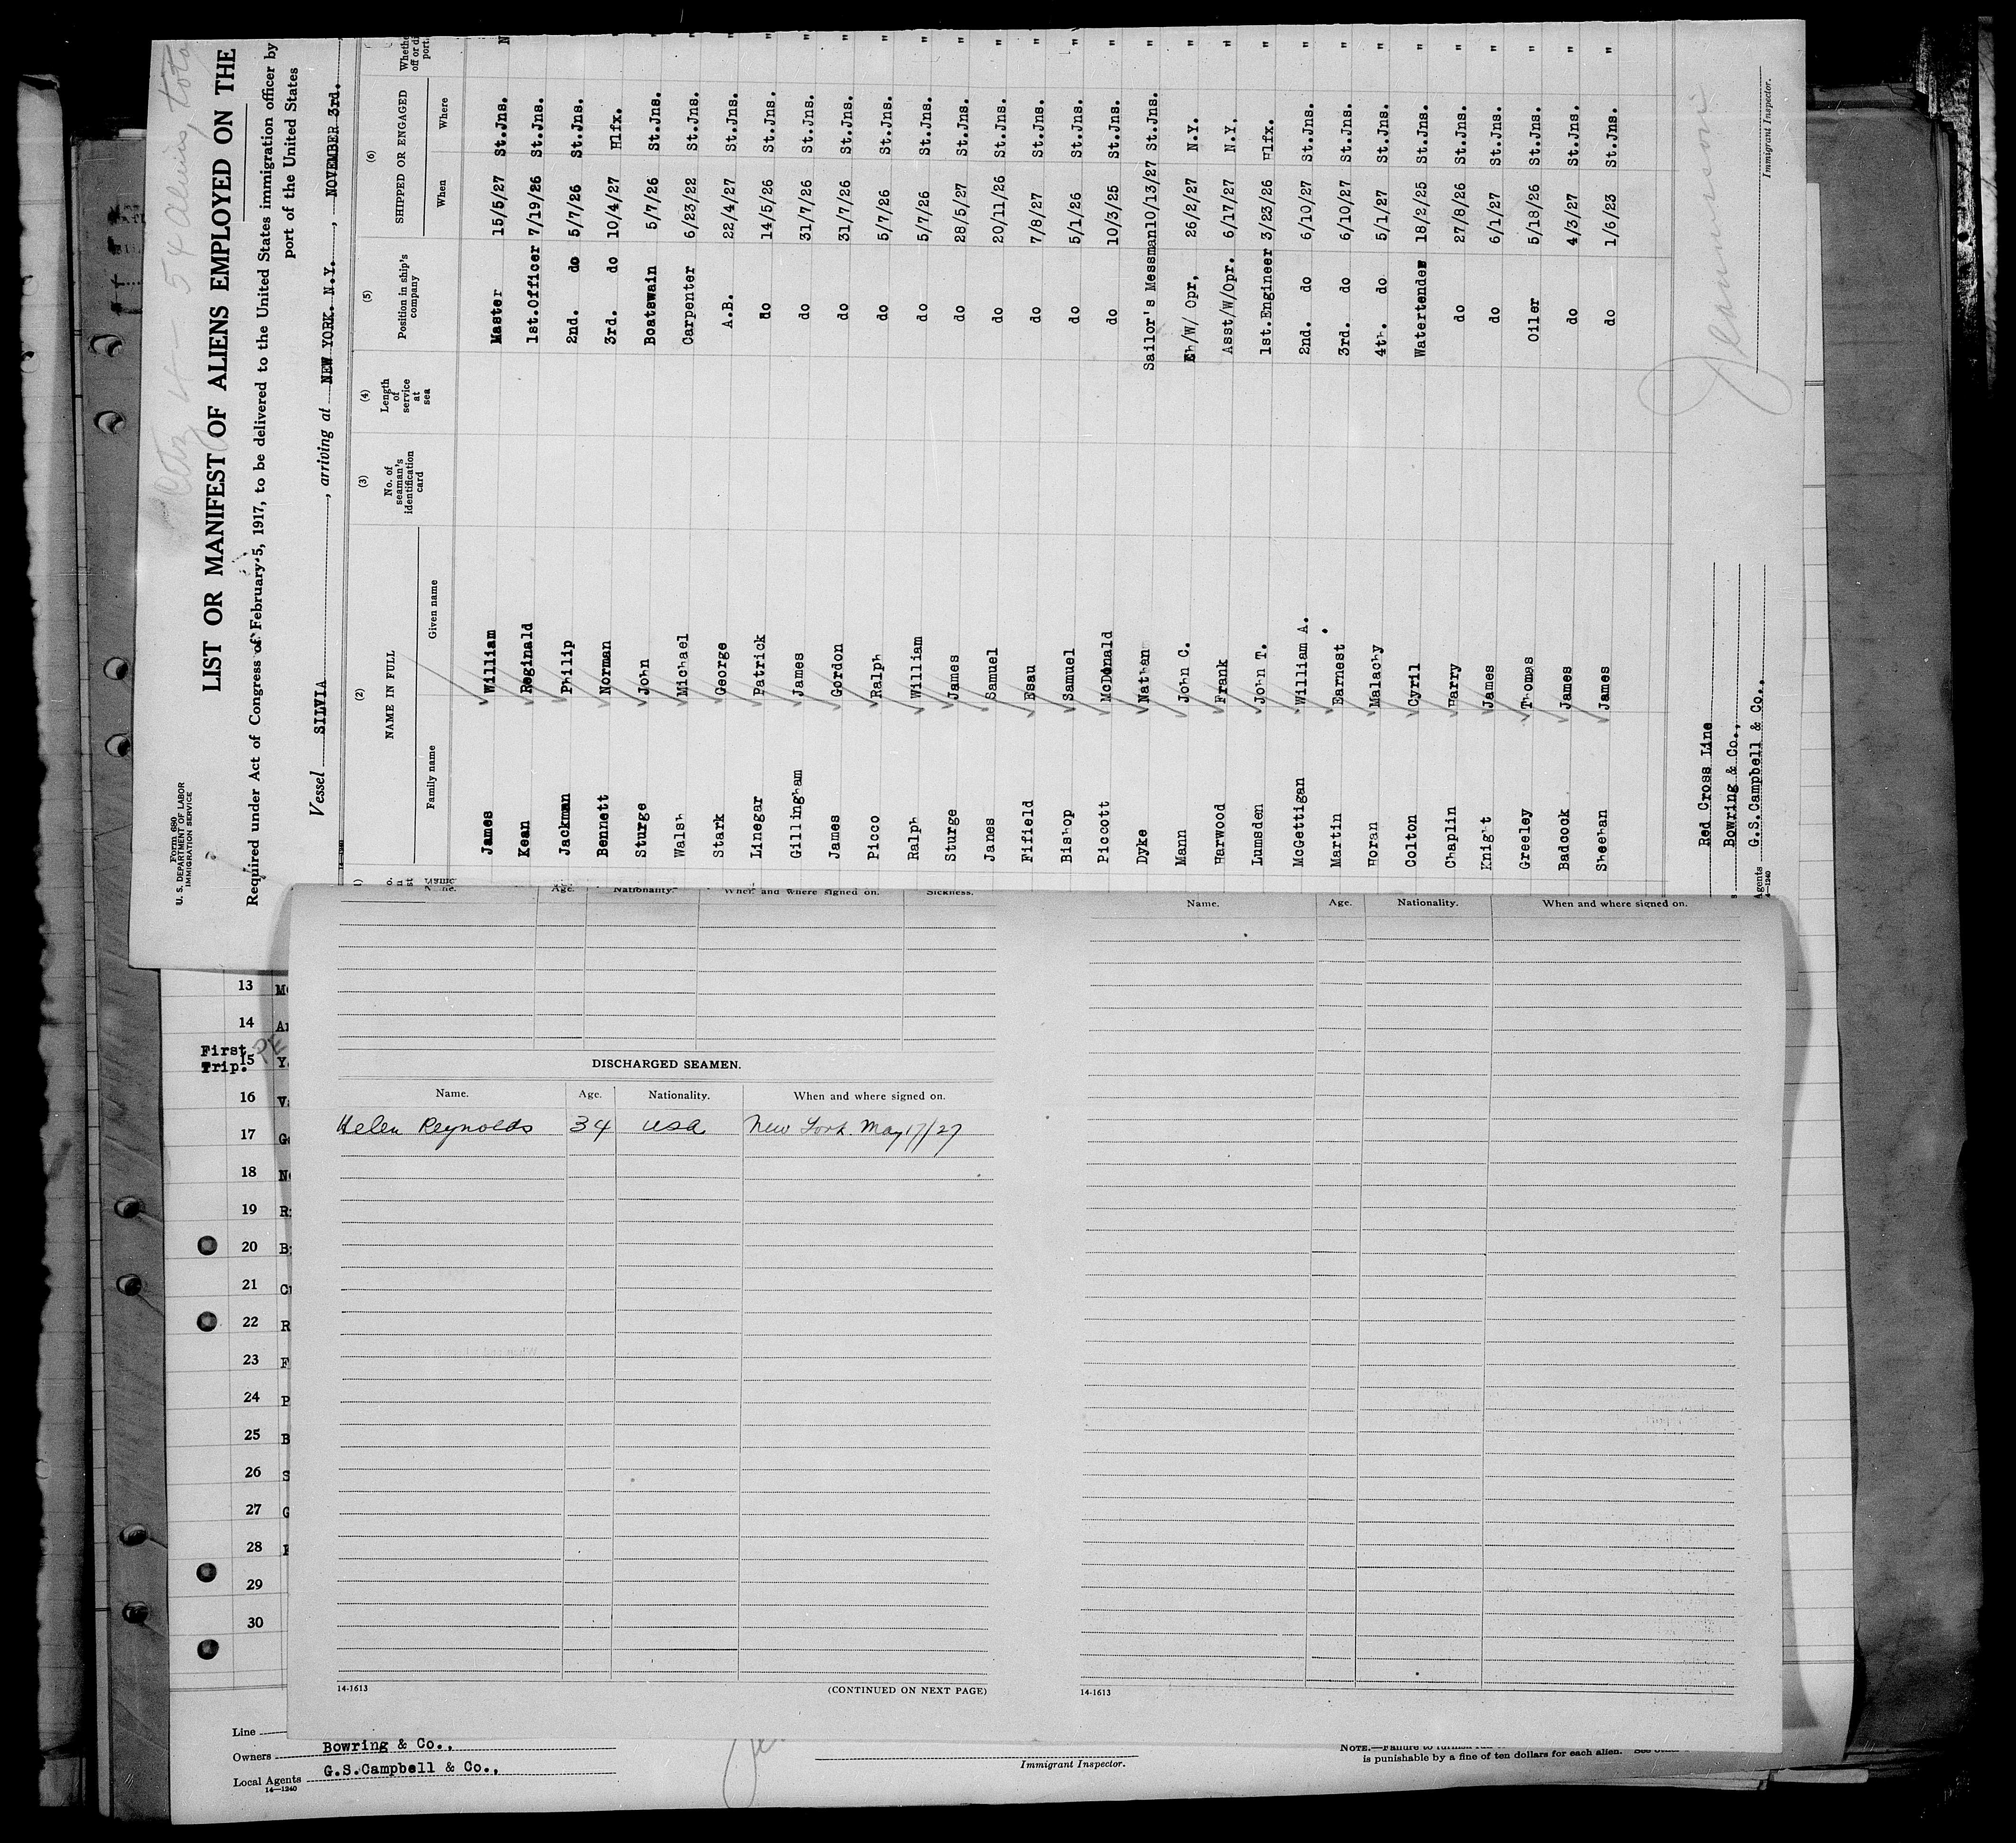 Form 680
U. S. DEPARTMENT OF LABOR
IMMIGRATION SERVICE
54 Aliens,
LIST OR MANIFEST OF ALIENS EMPLOYED ON THE
Required under Act of Congress of February 5, 1917, to be delivered to the United States immigration officer by
port of the United States
Vessel SILVIA, arriving at NEW YORK. N.Y., NOVEMBER 3rd.
(2) (3) (4) (5) (6)
NAME IN FULL No. of seaman's identification card Length of service at sea Position in ship's company SHIPPED OR ENGAGED
Family name Given name When Where
James William Master 15/5/27 St.Jns.
Kean Reginald 1st.Officer 7/19/26 St.Jns. "
Jackman Philip 2nd. do 5/7/26 St.Jns. "
Bennett Norman 3rd. do 10/4/27 Hlfx. "
Sturge John Boatswain 5/7/26 St.Jns. "
Walsh Michael Carpenter 6/23/22 St.Jns. "
Stark George A.B. 22/4/27 St.Jns. "
Linegar Patrick do 14/5/26 St.Jns. "
Gillingham James do 31/7/26 St.Jns. "
James Gordon do 31/7/26 St.Jns. "
Picco Ralph do 5/7/26 St.Jns. "
Ralph William do 5/7/26 St.Jns. "
Sturge James do 28/5/27 St.Jns. "
Janes Samuel do 20/11/26 St.Jns. "
Fifield Esau do 7/8/27 St.Jns. "
Bishop Samuel do 5/1/26 St.Jns. "
Picott McDonald do 10/3/25 St.Jns. "
Dyke Nathan Sailor's Messman 10/13/27 St.Jns. "
Mann John C. Ch/W/ Opr. 26/2/27 N.Y. "
Harwood Frank Asst/W/Opr. 6/17/27 N.Y. "
Lumsden John T. 1st.Engineer 3/23/26 Hlfx. "
McGettigan William A. 2nd. do 6/10/27 St.Jns. "
Martin Earnest 3rd. do 6/10/27 St.Jns. "
Horan Malachy 4th. do 5/1/27 St.Jns. "
Colton Cyril Watertender 18/2/25 St.Jns. "
Chaplin Harry do 27/8/26 St.Jns. "
Knight James do 6/1/27 St.Jns. "
Greeley Thomas Oiler 5/18/26 St.Jns. "
Badcock James do 4/3/27 St.Jns. "
Sheehan James do 1/6/23 St.Jns. "
Red Cross Line
Bowring & Co.,
Agents G.S.Campbell & Co.,
14-1240
Immigrant Inspector.
Name. Age. Nationality. When and where signed on. Sickness.
DISCHARGED SEAMEN.
Name. Age. Nationality. When and where signed on.
Helen Reynolds 34 USA New York. May 17/27
14-1613 (CONTINUED ON NEXT PAGE)
Name. Age. Nationality. When and where signed on.
14-1613
13
14
First Trip. 15
16
17
18
19
20
21
22
23
24
25
26
27
28
29
30
Line
Owners Bowring & Co.,
Local Agents G.S.Campbell & Co.,
14-1240
Immigrant Inspector.
is punishable by a fine of ten dollars for each alien.